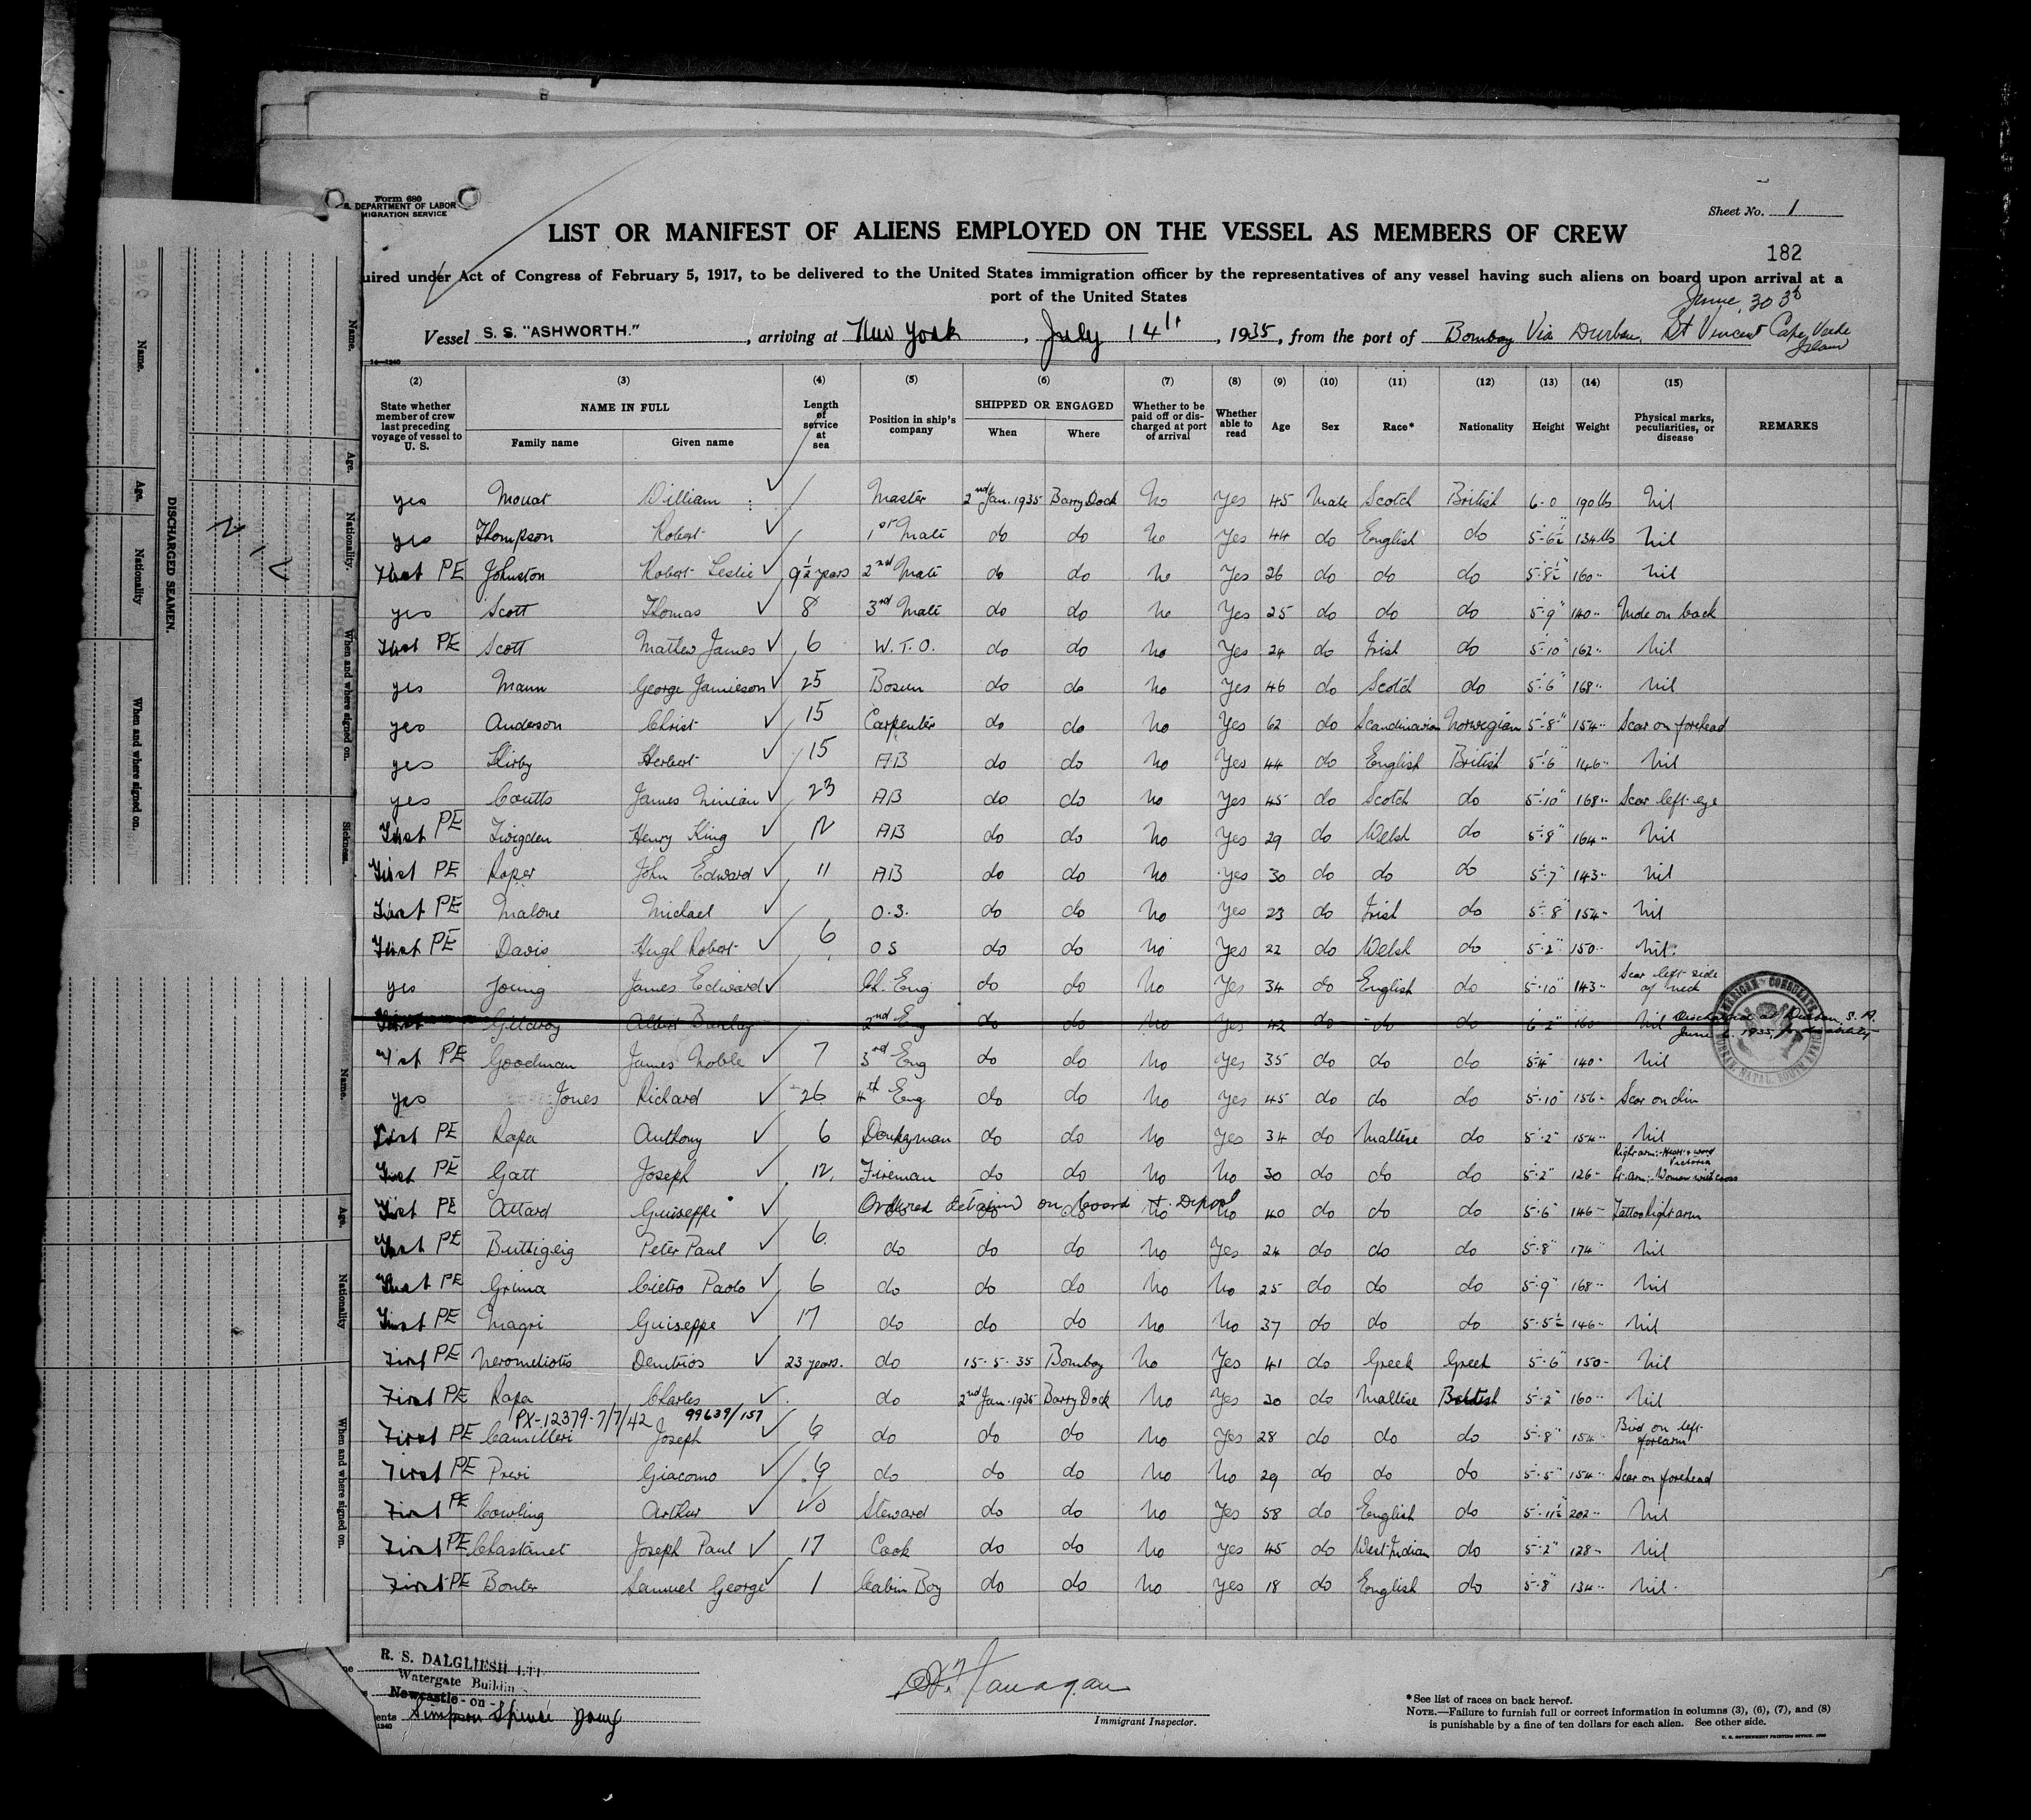 Form 680
S. DEPARTMENT OF LABOR
MIGRATION SERVICE
Sheet No. 1
LIST OR MANIFEST OF ALIENS EMPLOYED ON THE VESSEL AS MEMBERS OF CREW
182
uired under Act of Congress of February 5, 1917, to be delivered to the United States immigration officer by the representatives of any vessel having such aliens on board upon arrival at a
port of the United States
June 30
Vessel S. S. "ASHWORTH." , arriving at New York , July 14th , 1935, from the port of Bombay Via Durban, St Vincent Cape Verde Island
14-1240
(2) (3) (4) (5) (6) (7) (8) (9) (10) (11) (12) (13) (14) (15)
State whether member of crew last preceding voyage of vessel to U. S. NAME IN FULL Family name Given name Length of service at sea Position in ship's company SHIPPED OR ENGAGED When Where Whether to be paid off or discharged at port of arrival Whether able to read Age Sex Race* Nationality Height Weight Physical marks, peculiarities, or disease REMARKS
yes Mouat William Master 2nd Jan. 1935 Barry Dock No Yes 45 Male Scotch British 6-0 190 lbs Nil
yes Thompson Robert 1st Mate do do No Yes 44 do English do 5-6½ 134 lbs Nil
First PE Johnston Robert Leslie 9½ years 2nd Mate do do No Yes 26 do do do 5-8½ 160 Nil
yes Scott Thomas 8 3rd Mate do do No Yes 25 do do do 5-9" 140 Mole on back
First PE Scott Mathew James 6 W.T.O. do do No Yes 24 do Irish do 5-10 162 Nil
yes Mann George Jamieson 25 Bosun do do No Yes 46 do Scotch do 5-6" 168 Nil
yes Anderson Christ 15 Carpenter do do No Yes 62 do Scandinavian Norwegian 5-8" 154 Scar on forehead
yes Kirby Herbert 15 AB do do No Yes 44 do English British 5-6" 146 Nil
yes Coutts James Ninian 23 AB do do No Yes 45 do Scotch do 5-10" 168 Scar left eye
First PE Twigden Henry King 12 AB do do No Yes 29 do Welsh do 5-8" 164 Nil
First PE Roper John Edward 11 AB do do No Yes 30 do do do 5-7" 143 Nil
First PE Malone Michael O.S. do do No Yes 23 do Irish do 5-8" 154 Nil
First PE Davis Hugh Robert 6 OS do do No Yes 22 do Welsh do 5-2" 150 Nil
yes Young James Edward Ch. Eng do do No Yes 34 do English do 5-10" 143 Scar left side of neck
First Gilderoy Albert 2nd Eng do do No Yes 42 do do do 6-2" 160 Nil Discharged at Durban, S. A. June 1935, for disability
1st PE Goodman James Noble 7 3rd Eng do do No Yes 35 do do do 5-4" 140 Nil
yes Jones Richard 26 4th Eng do do No Yes 45 do do do 5-10" 156 Scar on chin
First PE Rapa Anthony 6 Donkeyman do do No Yes 34 do Maltese do 5-2" 154 Nil
First PE Gatt Joseph 12 Fireman do do No No 30 do do do 5-2" 126 Right arm:- Heart & word Victoria Lt. arm:- Woman with cross
First PE Attard Guiseppe Ordered detained on board & Depos do do do No No 40 do do do 5-6" 146 Tattoo Right arm
First PE Buttigeig Peter Paul 6 do do do No Yes 24 do do do 5-8" 174 Nil
First PE Grima Cietro Paolo 6 do do do No No 25 do do do 5-9" 168 Nil
First PE Magri Guiseppe 17 do do do No No 37 do do do 5-5½ 146 Nil
First PE Neromeliotis Demitrios 23 years. do 15-5-35 Bombay No Yes 41 do Greek Greek 5-6" 150 Nil
First PE Rapa Charles do 2nd Jan. 1935 Barry Dock No Yes 30 do Maltese British 5-2" 160 Nil
PX-12379-7/7/42 99639/157
First PE Camilleri Joseph 6 do do do No Yes 28 do do do 5-8" 154 Bird on left forearm
First PE Previ Giacomo 6 do do do No No 29 do do do 5-5" 154 Scar on forehead
First PE Cowling Arthur Steward do do No Yes 58 do English do 5-11½ 202 Nil
First PE Chastanet Joseph Paul 17 Cook do do No Yes 45 do West Indian do 5-2" 128 Nil
First PE Bonter Samuel George 1 Cabin Boy do do No Yes 18 do English do 5-8" 134 Nil
AMERICAN CONSULATE
DURBAN, NATAL, SOUTH AFRICA
R. S. DALGLIESH LTD
Watergate Buildin
Newcastle-on-
ents Simpson Spence Young
1240
Flanagan
Immigrant Inspector.
*See list of races on back hereof.
NOTE.—Failure to furnish full or correct information in columns (3), (6), (7), and (8)
is punishable by a fine of ten dollars for each alien. See other side.
U. S. GOVERNMENT PRINTING OFFICE
DISCHARGED SEAMEN.
Name. Age. Nationality When and where signed on.
Name. Age. Nationality When and where signed on. Sickness.
Name. Age. Nationality When and where signed on.
Nil